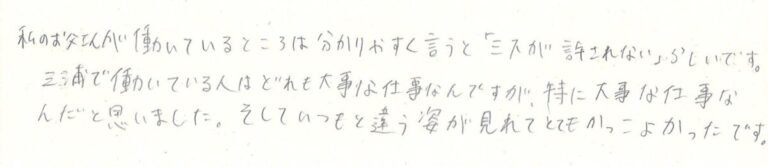 私のお父さんが働いているところは分かりやすく言うと「ミスが許されない」らしいです。
三浦で働いている人はどれも大事な仕事なんですが、特に大事な仕事な
んだと思いました。そしていつもと違う姿が見れてとてもかっこよかったです。